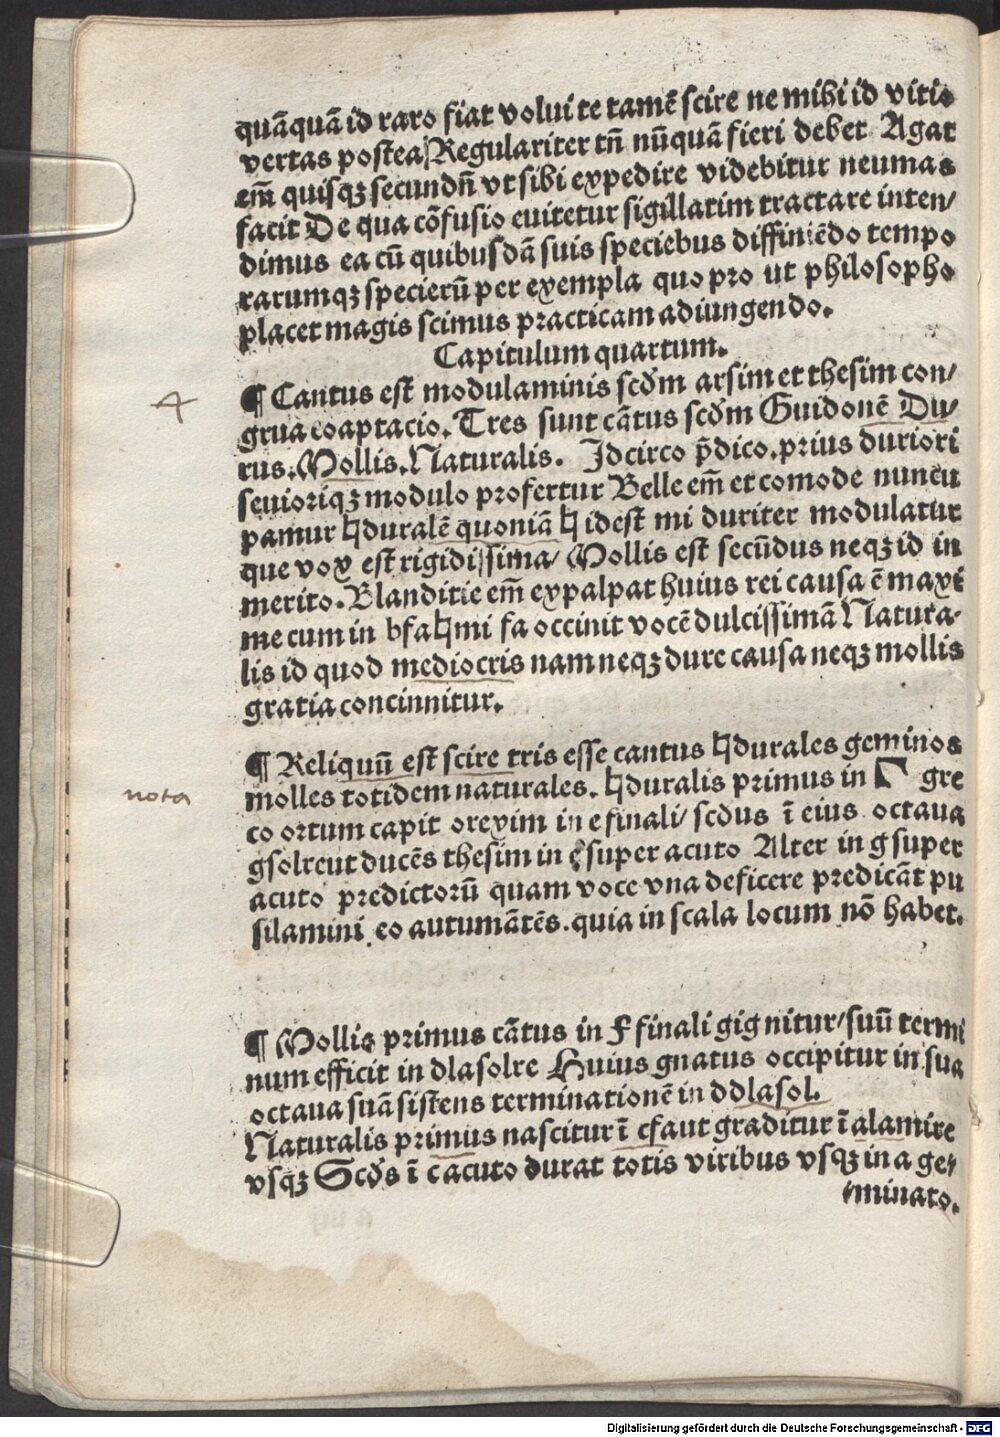 quāquā id raro fiat volui te tamē scire ne mihi id vitio
vertas postea Regulariter tn̄ nūquā fieri debet Agat
em̄ quisqꝫ secundn̄ vt sibi expedire videbitur neumas
facit De qua cōfusio euitetur sigillatim tractare inten/
dimus ea cū quibusdā suis speciebus diffiniēdo tempo
rarumqꝫ specierū per exempla quo pro ut philosopho
placet magis scimus practicam adiungendo.
Capitulum quartum.
4
¶ Cantus est modulaminis scd̄m arsim et thesim con/
grua coaptacio. Tres sunt cātus scd̄m Guidonē Du/
rus. Mollis. Naturalis. Idcirco p̄dico. prius duriori
seuioriqꝫ modulo profertur Belle em̄ et comode nuncu
pamur ♮duralē quoniā ♮ idest mi duriter modulatur
que vox est rigidissima/ Mollis est secūdus neqꝫ id in
merito. Blanditie em̄ expalpat huius rei causa ē maxi
me cum in bfa♮mi fa occinit vocē dulcissimā Natura-
lis id quod mediocris nam neqꝫ dure causa neqꝫ mollis
gratia concinnitur.
¶ Reliquū est scire tris esse cantus ♮durales geminos
nota
molles totidem naturales. ♮duralis primus in Γ gre
co ortum capit orexim in e finali/ scd̄us ī eius octaua
gsolreut ducēs thesim in e super acuto Alter in g super
acuto predictorū quam voce vna deficere predicāt pu
silamini eo autumātēs. quia in scala locum nō habet.
¶ Mollis primus cātus in F finali gignitur/ suū termi
num efficit in dlasolre Huius gnatus occipitur in sua
octaua suā sistens terminationē in ddlasol.
Naturalis primus nascitur ī cfaut graditur ī alamire
vsqꝫ Scd̄s ī c acuto durat totis viribus vsqꝫ in a ge/
/minato.
Digitalisierung gefördert durch die Deutsche Forschungsgemeinschaft - DFG